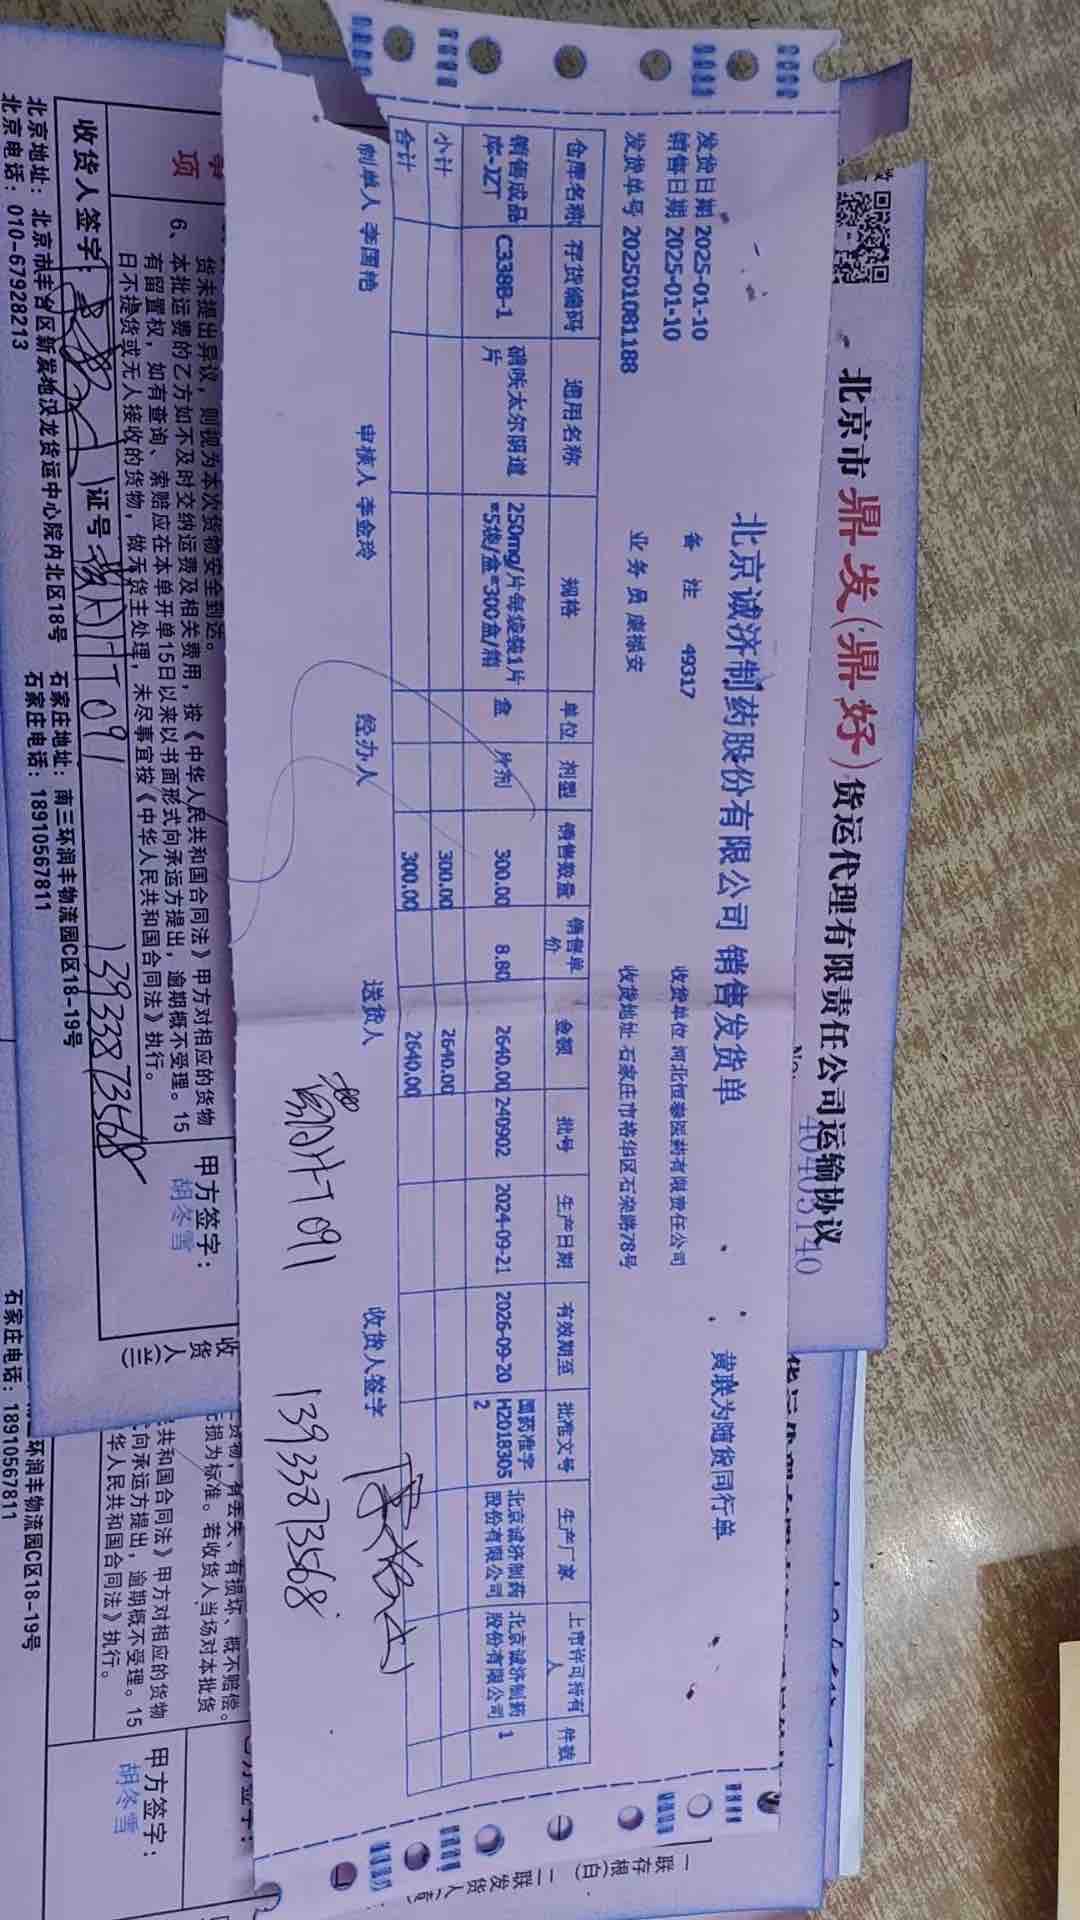 北京市鼎发(鼎好)货运代理有限责任公司运输协议
40405140
北京诚济制药股份有限公司 销售发货单
黄联为随货同行单
发货日期 2025-01-10
备 注 49317
收货单位 河北恒泰医药有限责任公司
销售日期 2025-01-10
发货单号 202501081188
业务员 康振安
收货地址 石家庄市裕华区石栾路78号
仓库名称 存货编码 通用名称 规格 单位 剂型 销售数量 销售单价 金额 批号 生产日期 有效期至 批准文号 生产厂家 上市许可持有人 件数
销售成品 C338B-1 硝呋太尔阴道 250mg/片每袋装1片 盒 片剂 300.00 8.80 2640.00 240902 2024-09-21 2026-09-20 国药准字 北京诚济制药 北京诚济制药 1
库-JZT 片 *5袋/盒*300盒/箱 H2018305 股份有限公司 股份有限公司
2
小计 300.00 2640.00
合计 300.00 2640.00
制单人 李国艳 审核人 李金玲 经办人 送货人 收货人签字
T091
13933873568
事项
货未提出异议，则视为本次货物安全到达。
6、本批运费的乙方如不及时交纳运费及相关费用，按《中华人民共和国合同法》甲方对相应的货物
有留置权，如有查询、索赔应在本单开单15日以来以书面形式向承运方提出，逾期概不受理。15
日不提货或无人接收的货物，做无货主处理，未尽事宜按《中华人民共和国合同法》执行。
收货人签字：
证号：
T091
13933873568
甲方签字：
胡冬雪
北京地址：北京市丰台区新发地汉龙货运中心院内北区18号 石家庄地址：南三环润丰物流园C区18-19号
北京电话：010-67928213 石家庄电话：18910567811
收货人(三
货物，有丢失、有损坏、概不赔偿。
损为标准。若收货人当场对本批货
共和国合同法》甲方对相应的货物
向承运方提出，逾期概不受理。15
华人民共和国合同法》执行。
甲方签字：
胡冬雪
环润丰物流园C区18-19号
石家庄电话：18910567811
一联存根(白) 二联发货人(